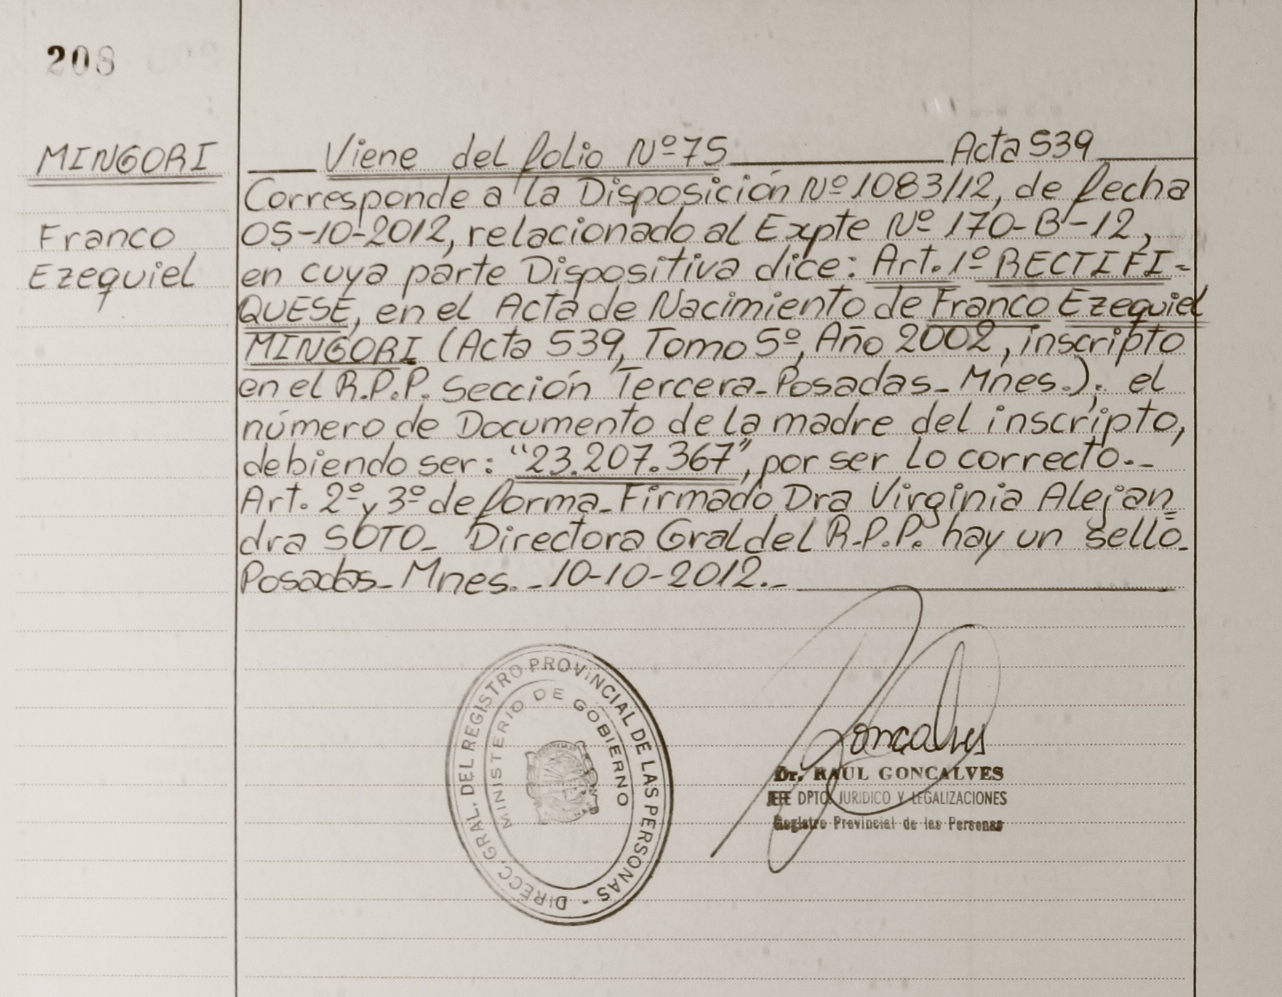 208
MINGORI
Franco
Ezequiel
Viene del folio Nº75 Acta 539
Corresponde a la Disposición Nº 1083/12, de fecha
05-10-2012, relacionado al Expte Nº 170-B-12,
en cuya parte Dispositiva dice: Art. 1º RECTIFI-
QUESE, en el Acta de Nacimiento de Franco Ezequiel
MINGORI (Acta 539, Tomo 5º, Año 2002, inscripto
en el R.P.P. Sección Tercera-Posadas-Mnes.); el
número de Documento de la madre del inscripto,
debiendo ser: "23.207.367", por ser lo correcto.-
Art. 2º y 3º de forma-Firmado Dra Virginia Alejan=
dra SOTO- Directora Gral del R.P.P. hay un sello-
Posadas-Mnes.-10-10-2012.-
DIRECC. GRAL. DEL REGISTRO PROVINCIAL DE LAS PERSONAS -
MINISTERIO DE GOBIERNO
Goncalves
Dr. RAUL GONCALVES
JEFE DPTO. JURIDICO Y LEGALIZACIONES
Registro Provincial de las Personas